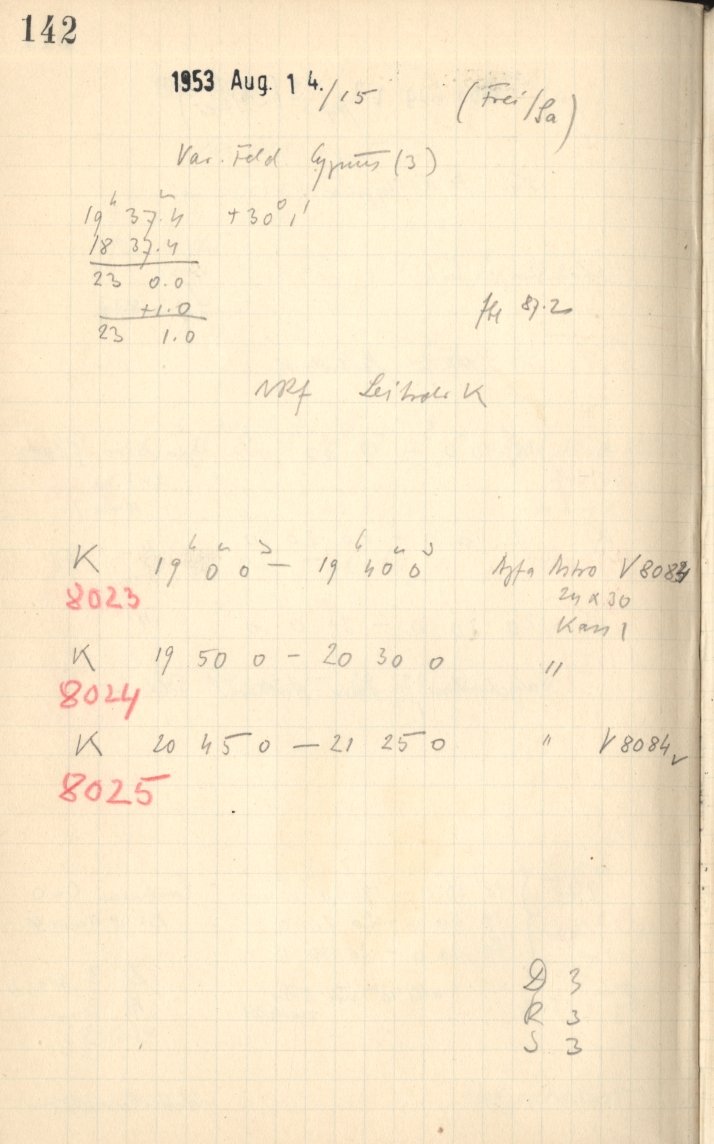 142
1953 Aug. 14./15 (Frei/Sa)
Var. Feld Cygnus (3)
19ʰ 37.4ᵐ +30° 1'
18 37.4
23 0.0
+1.0
23 1.0
87.2
Leitrohr K
K 19ʰ 0ᵐ 0ˢ – 19ʰ 40ᵐ 0ˢ Agfa Astro V 8083
8023
24 x 30
Kass 1
K 19 50 0 – 20 30 0 "
8024
K 20 45 0 – 21 25 0 " V 8084
8025
D 3
R 3
S 3